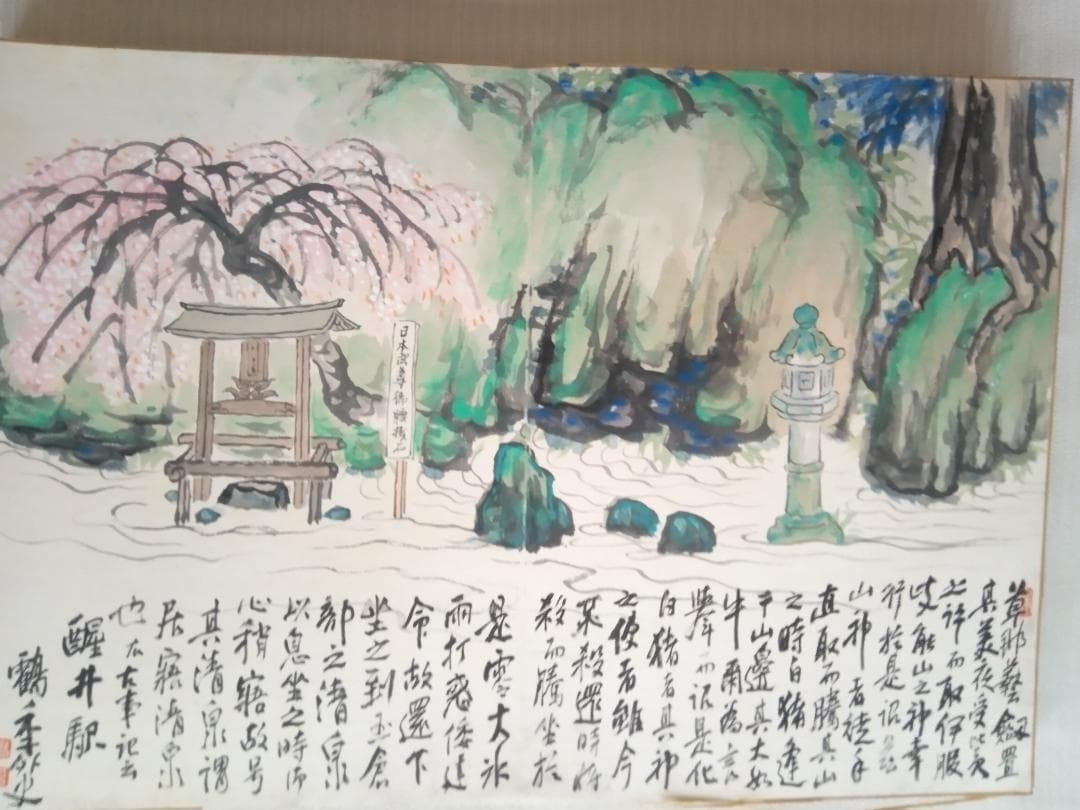 日本武尊御腰掛石
草那藝劔置
其美夜受比賣
之許而取伊服
岐能山之神幸
行於是詔茲
山神者徒手
直取而騰其山
之時白猪逢
于山邊其大如
牛爾為言
擧而詔是化
白猪者其神
之使者雖今
不殺還時将
殺而騰坐於
是零大氷
雨打惑倭建
命故還下
坐之到玉倉
部之清泉
以息坐之時御
心稍寤故号
其清泉謂
居寤清泉
也 右古事記云
醒井駅